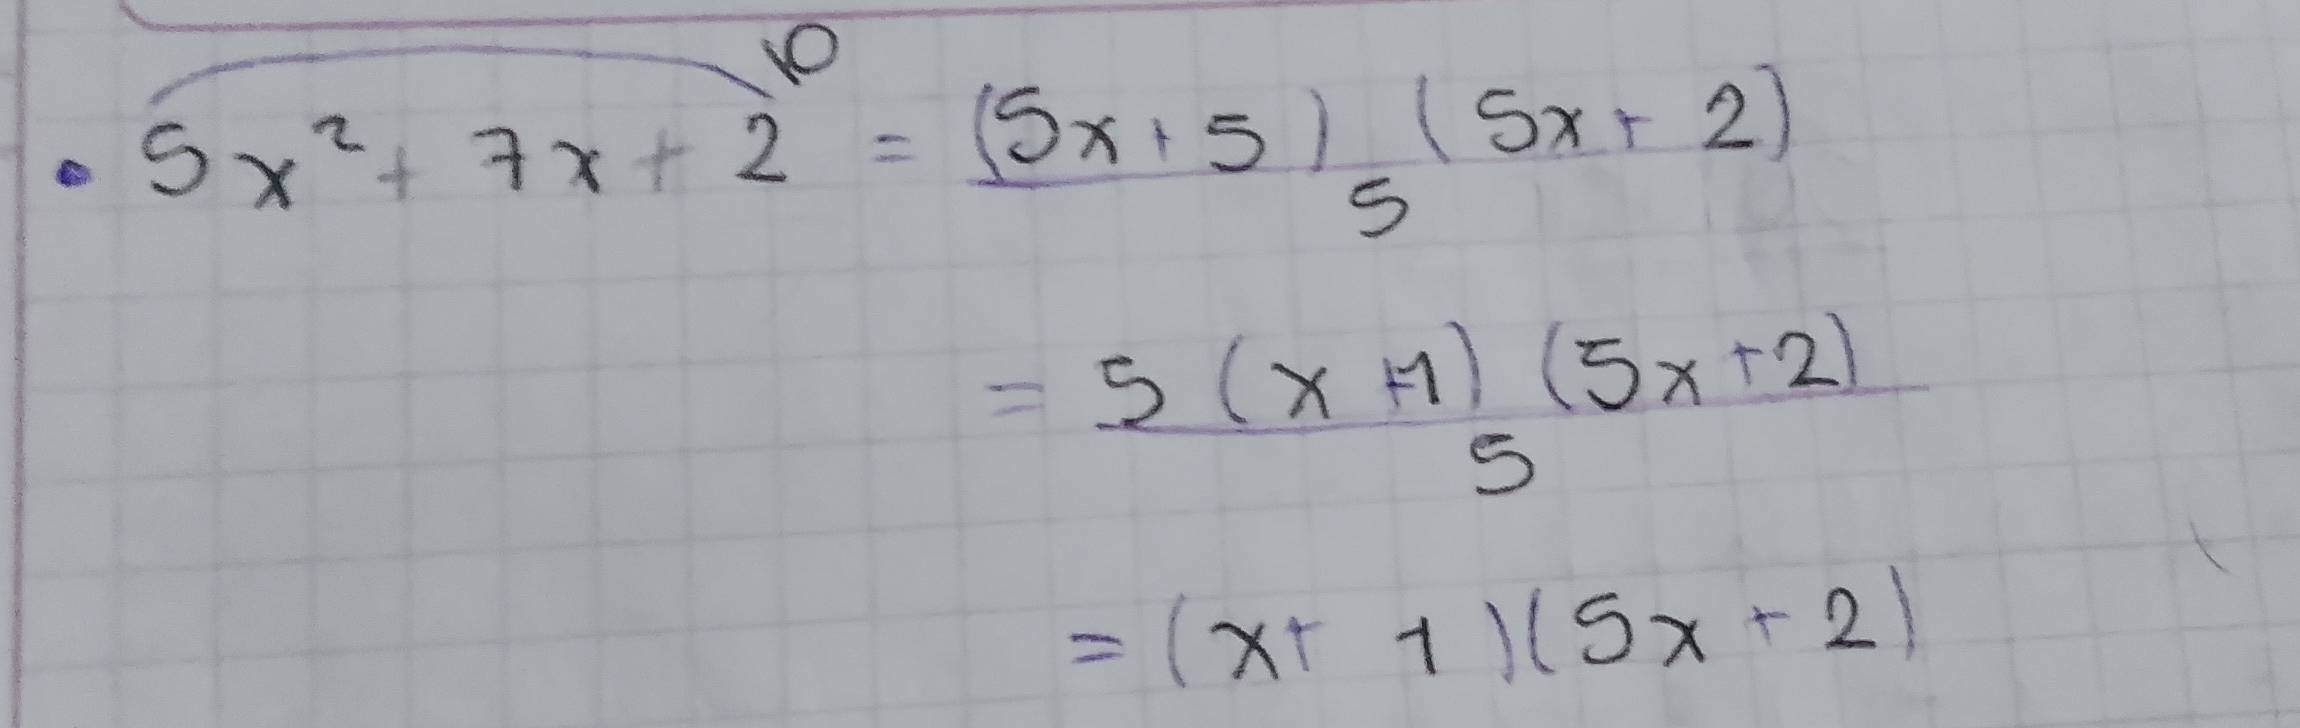 10
• 5x² + 7x + 2 = (5x + 5) (5x + 2)
5
= 5 (x + 1) (5x + 2)
5
= (x + 1)(5x + 2)